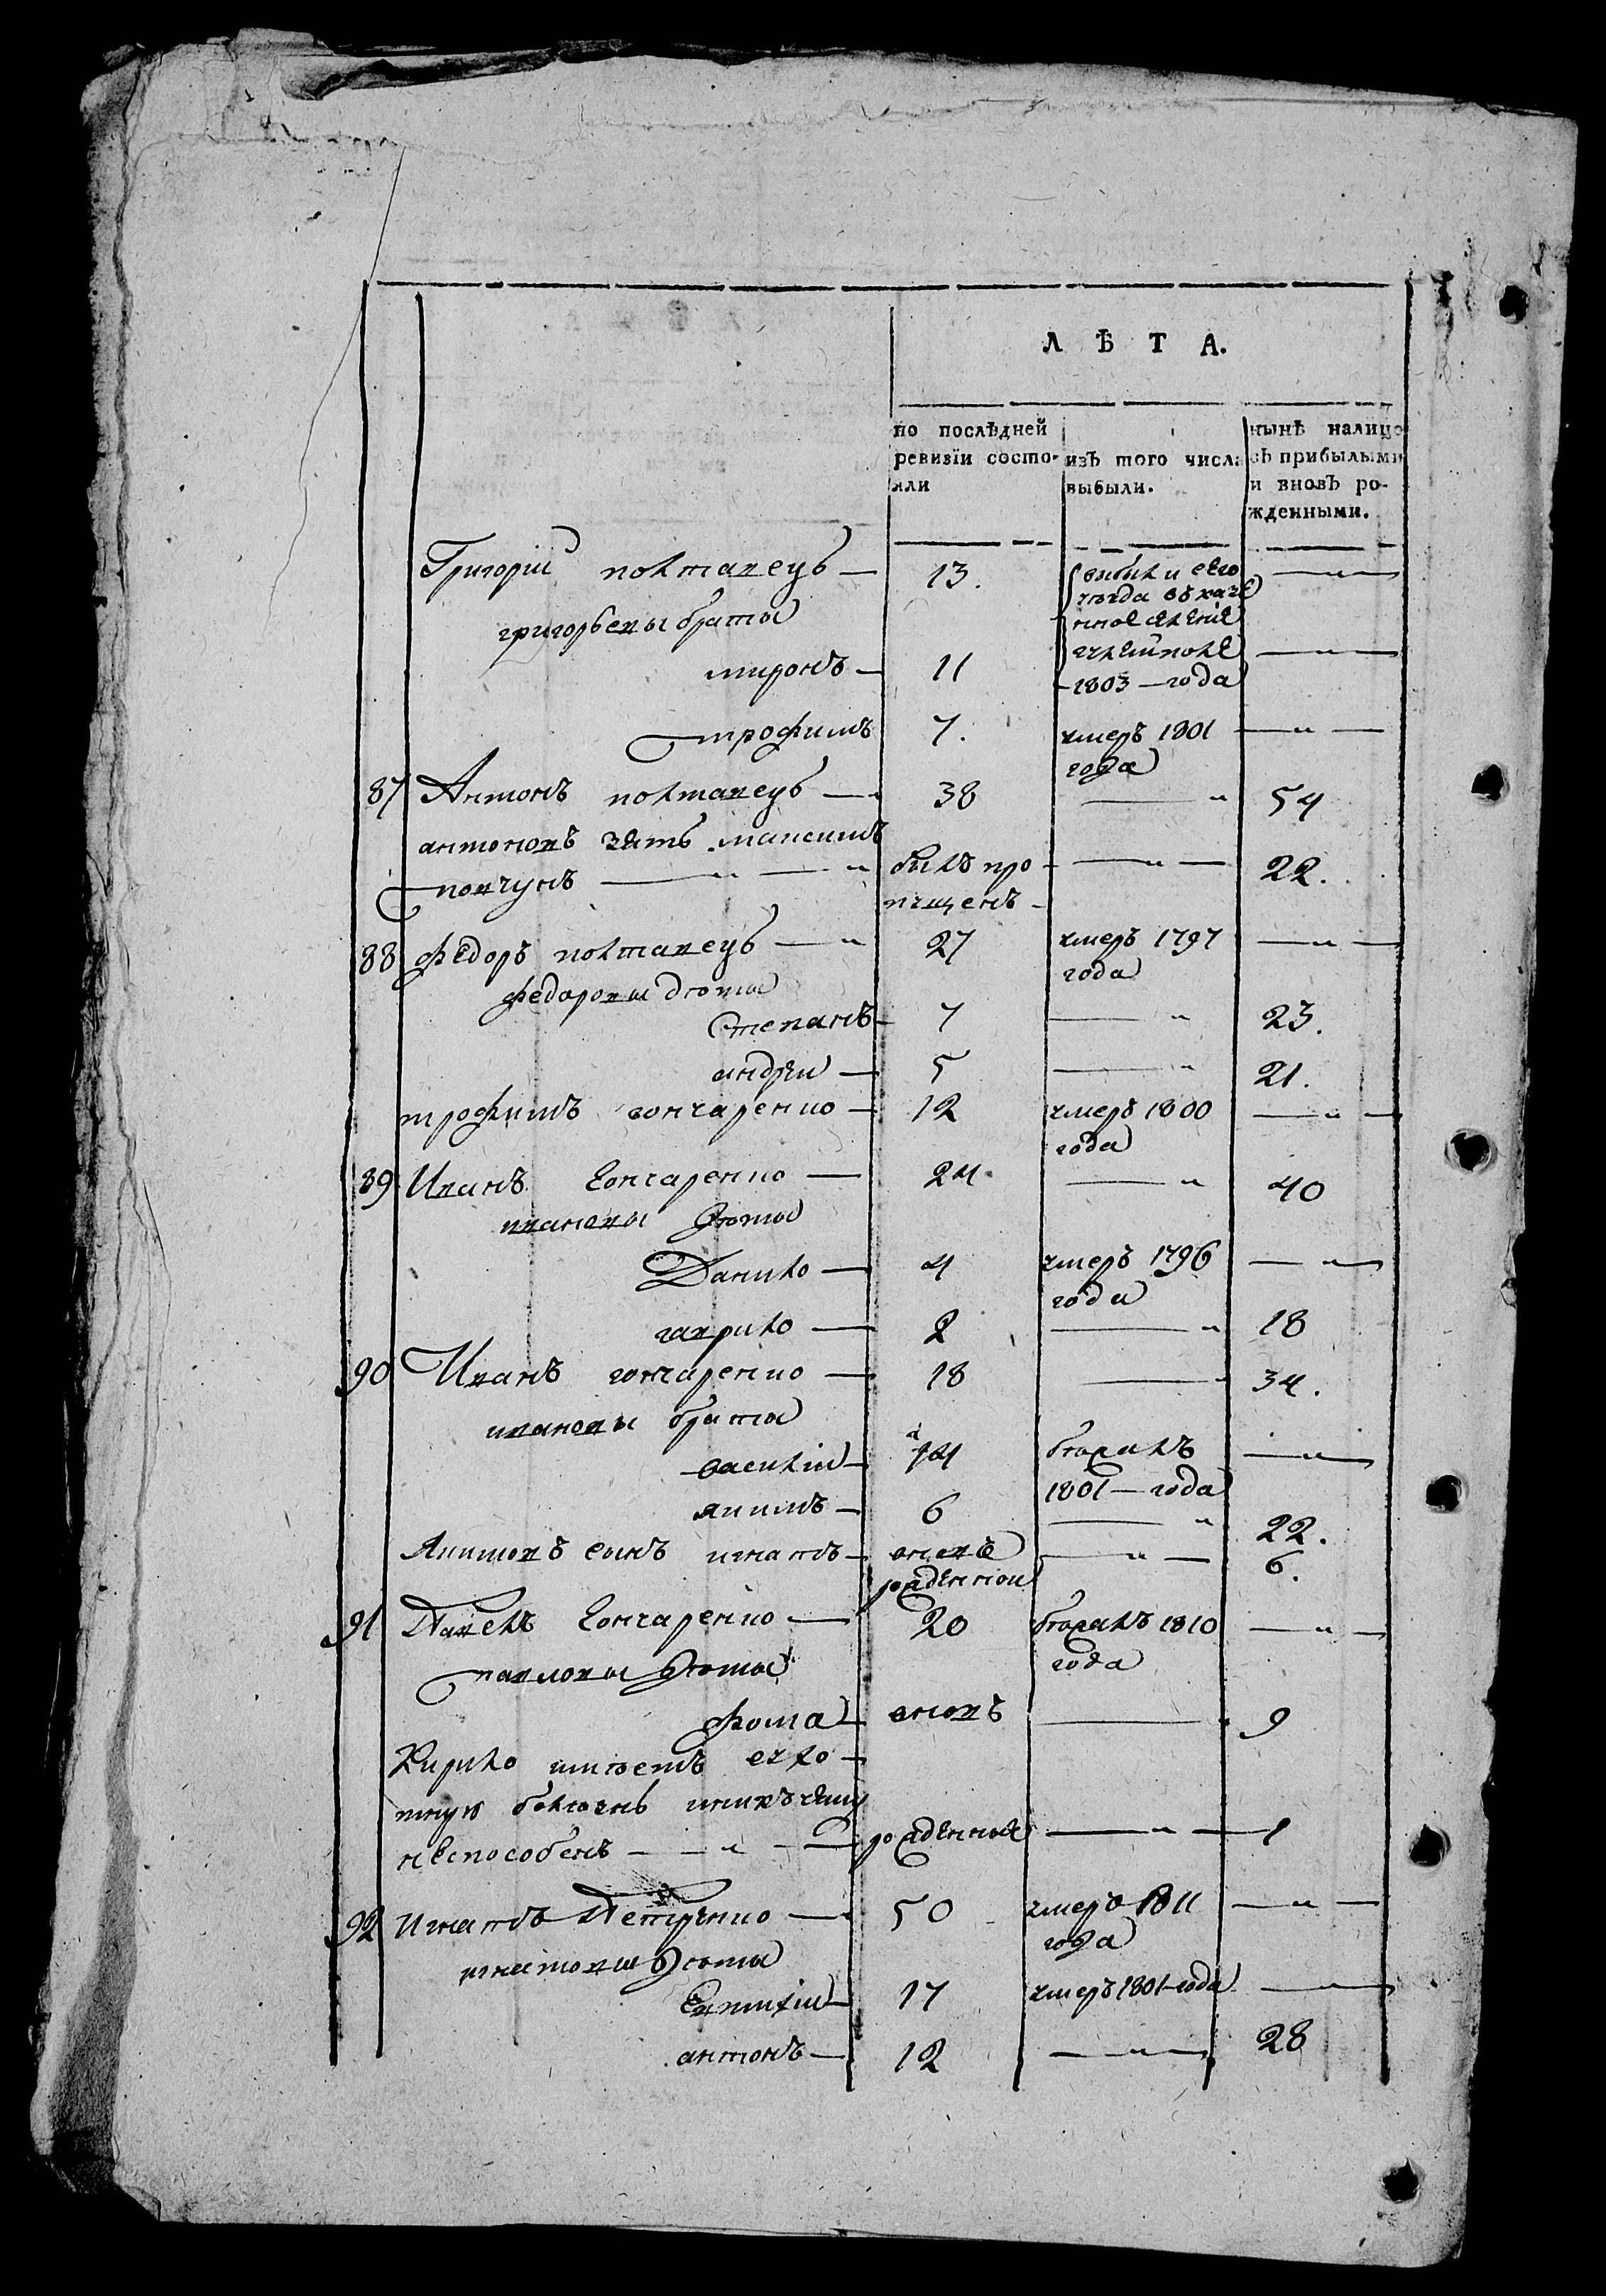 ЛѢТА.
по послѣдней ревизіи состояли
изъ того числа выбыли.
нынѣ налицо съ прибылыми и вновь рожденными.
Григорій полтавецъ — 13. —〃—
григорьевы братья
миронъ — 11 —〃—
1803 — года
трофимъ 7. умеръ 1801 —〃—
года
87 Антонъ полтавецъ — 38 —〃 54
антоновъ зять максимъ
—〃—〃 былъ про- —〃— 22.
пущенъ
88 федоръ полтавецъ —〃 27 умеръ 1797 —〃—
года
федоровы дѣти
Степанъ — 7 —〃 23.
андрей — 5 —〃 21.
трофимъ гончаренко — 12 умеръ 1800 —〃—
года
89 Иванъ Гончаренко — 24. —〃 40
ивановы дѣти
Данило — 4 умеръ 1796 —〃—
года
гаврило — 2 —〃 18
90 Иванъ гончаренко — 18 — 34.
ивановы братья
василій — 14 бѣжалъ —〃—
1801 — года
якимъ — 6 —〃 22.
Якимовъ сынъ игнатъ — вновѣ —〃— 6.
рожденной
91 Павелъ Гончаренко — 20 бѣжалъ 1810 —〃—
года
павловы дѣти
фома — вновъ — 9
Кирило имѣетъ
болѣзнь
неспособенъ — —〃— рожденные —〃— 1
92 Игнатъ Петренко — 50 умеръ 1811 —〃—
года
игнатовы дѣти
Евтихій — 17 умеръ 1801 года —〃—
антонъ — 12 —〃— 28